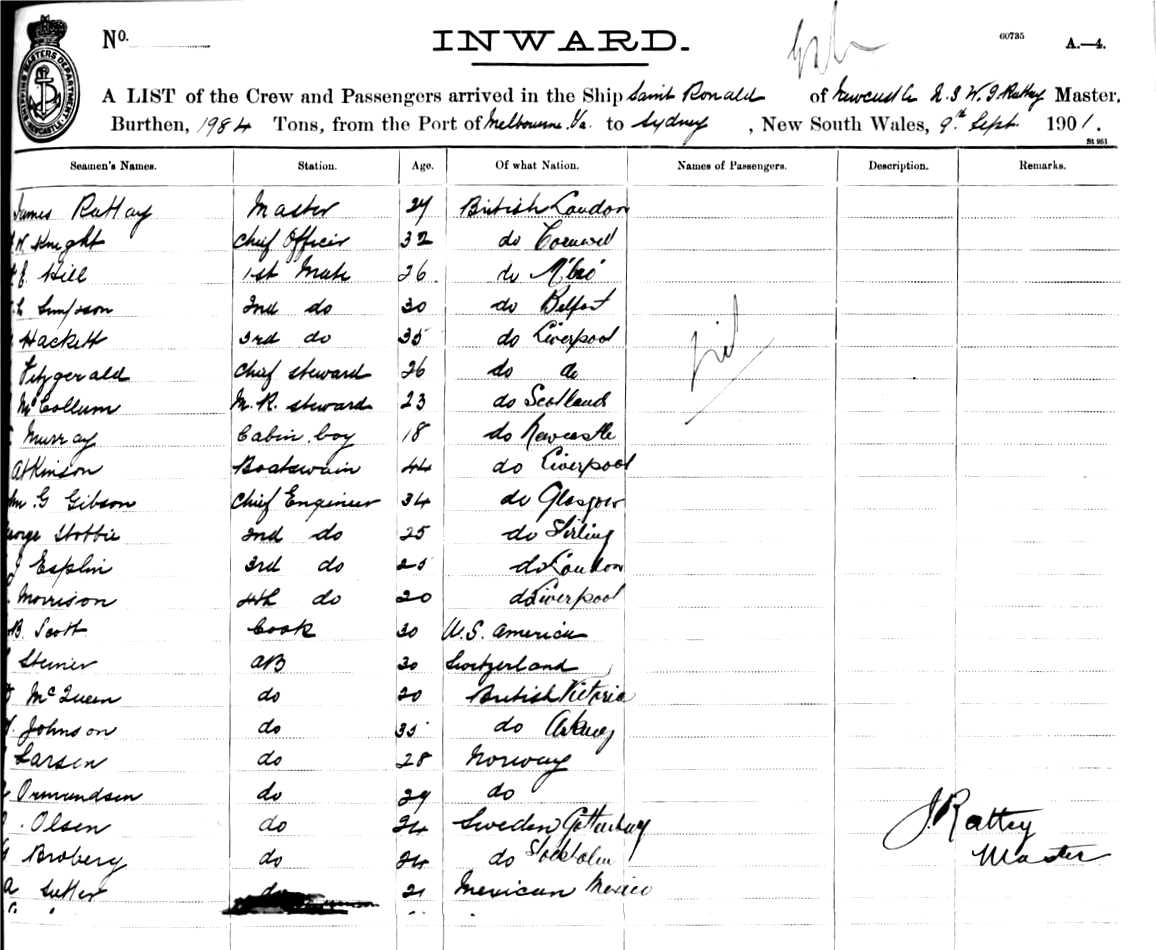 SHIPPING MASTERS DEPARTMENT. NEWCASTLE.
No.
INWARD.
60735
A.—4.
A LIST of the Crew and Passengers arrived in the Ship Saint Ronald of Newcastle N.S.W. J. Rattey Master,
Burthen, 1984 Tons, from the Port of Melbourne Va. to Sydney, New South Wales, 9th Sept. 1901.
St 961
Seamen's Names. Station. Age. Of what Nation. Names of Passengers. Description. Remarks.
James Rattay Master British London
Knight Chief Officer 32 do Cornwell
Hill 1st Mate 26 do
Simpson 2nd do 30 do Belfast
Hackett 3rd do 35 do Liverpool
nil
Fitzgerald Chief steward 26 do do
McCollum M. R. steward 23 do Scotland
Murray Cabin boy 18 do Newcastle
Atkinson Boatswain 44 do Liverpool
Wm. G Gibson Chief Engineer 34 do Glasgow
George Stobbie 2nd do 25 do Stirling
J Esplin 3rd do 25 do London
Morrison 4th do 20 do Liverpool
B. Scott Cook 30 U.S. America
Steiner AB 30 Switzerland
McQueen do 20 British Victoria
Johnson do 35 do
Larsen do 28 Norway
Ormundsen do 29 do
Olsen do 24 Sweden Gottenburg
J. Rattey
Broberg do 24 do Stockholm
Master
A Sutter do 21 Mexican Mexico